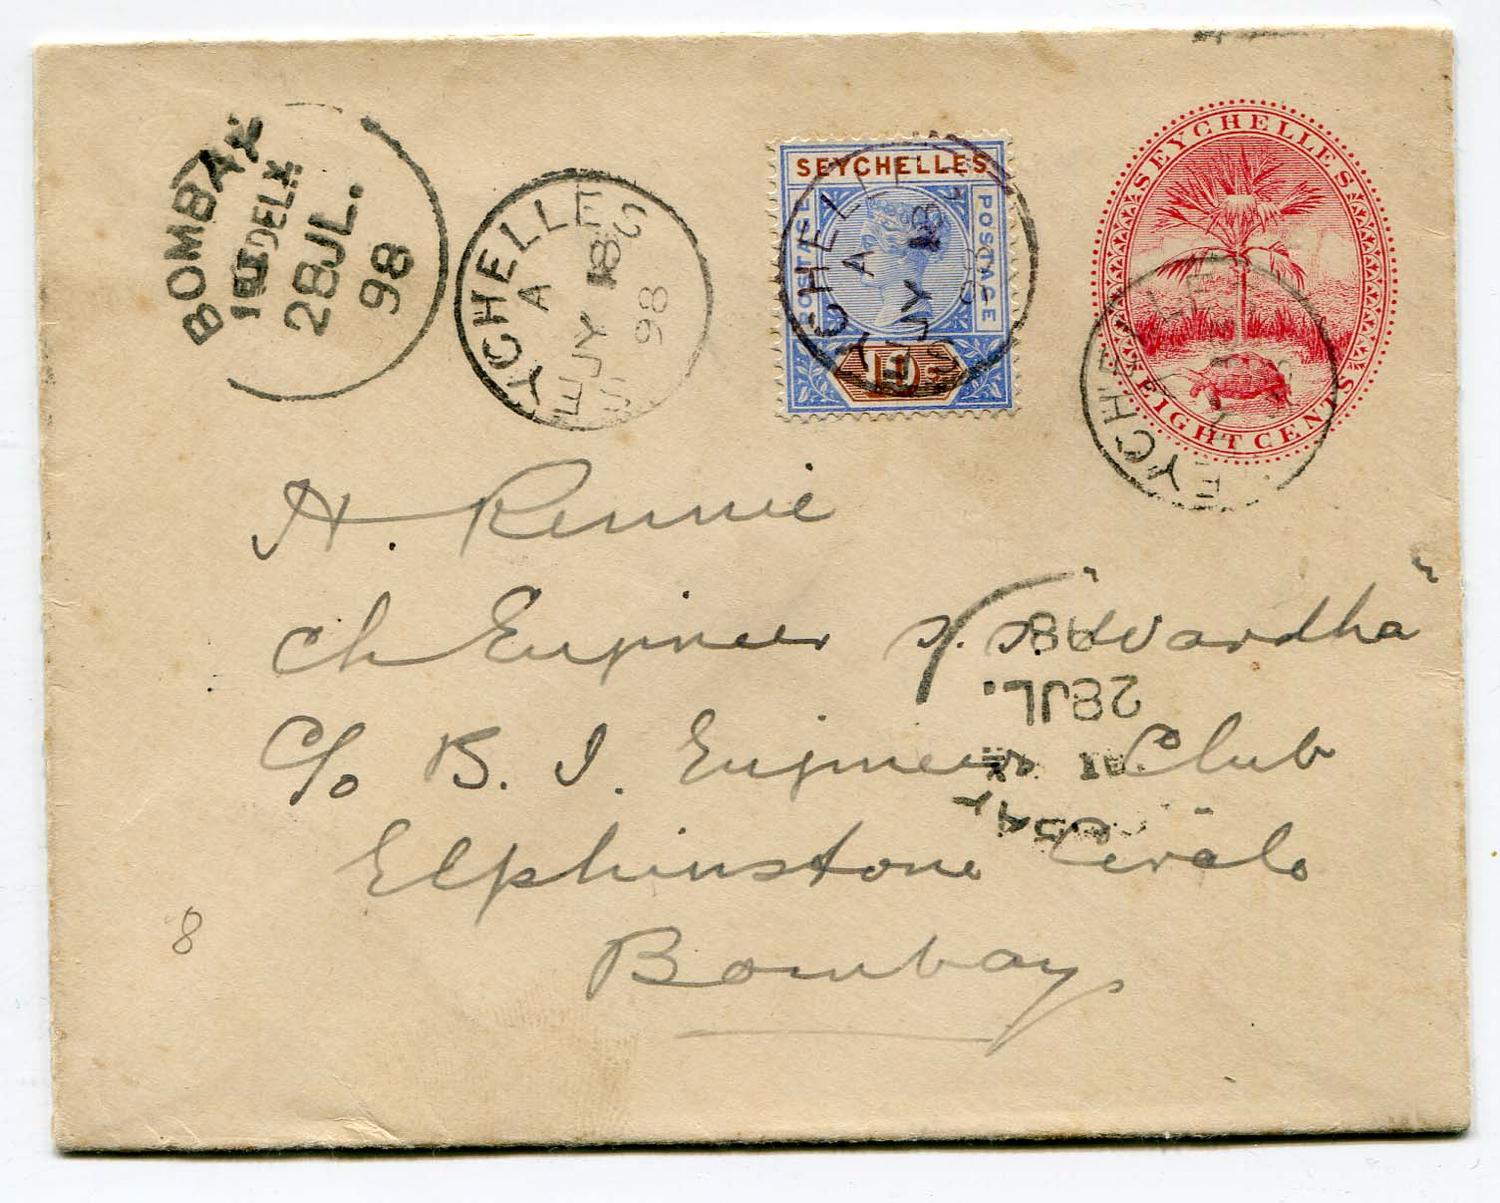 BOMBAY
1ST DEL
28JL.
98
SEYCHELLES
A
JY 18
98
SEYCHELLES
POSTAGE
POSTAGE
SEYCHELLES
A
JY 18
98
SEYCHELLES
EIGHT CENTS
SEYCHELLES
H. Rennie
Ch Engineer S.S. "Wardha"
98
28JL.
C/o B. I. Engineers Club
Elphinstone Circle
Bombay
8